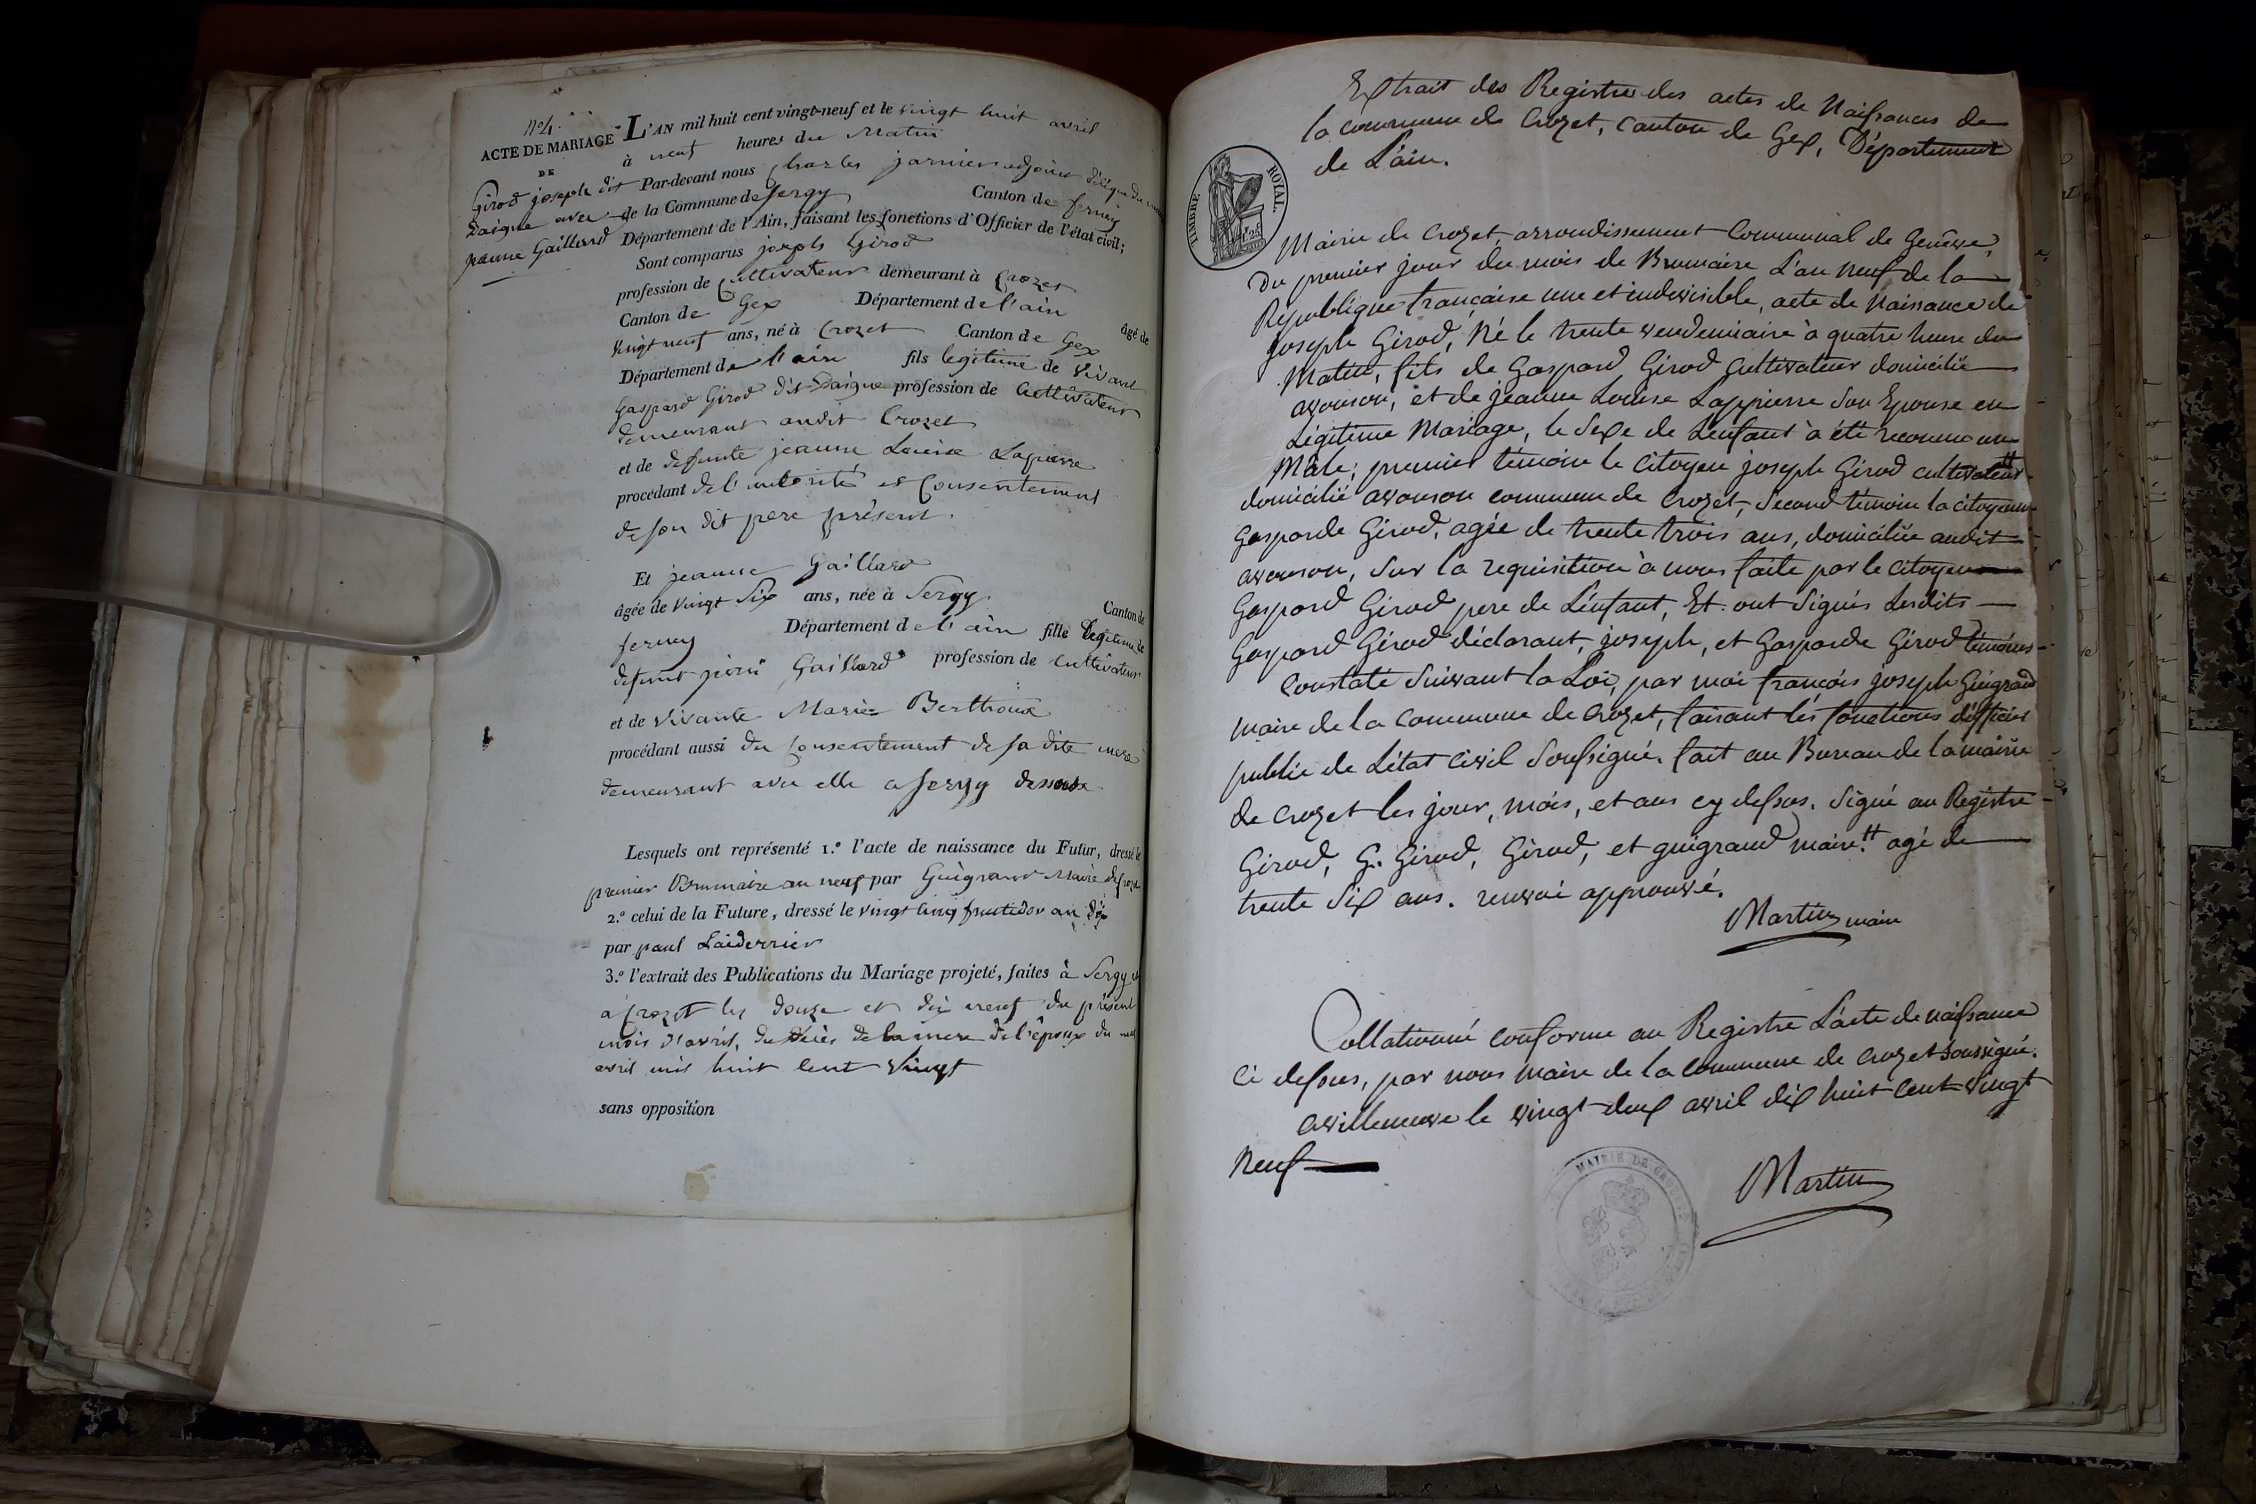 N° 4.
ACTE DE MARIAGE
DE
Girod joseph dit
Daigue avec
jeanne Gaillard
L'AN mil huit cent vingt-neuf et le vingt huit avril
à neuf heures du Matin
Par-devant nous Charles jarnier adjoint délégué du
de la Commune de Sergy Canton de ferney
Département de l'Ain, faisant les fonctions d'Officier de l'état civil;
Sont comparus joseph Girod
profession de Cultivateur demeurant à Crozet
Canton de Gex Département de l'ain âgé de
vingt neuf ans, né à Crozet Canton de Gex
Département de l'ain fils legitime de vivant
Gaspard Girod dit Daigue profession de Cultivateur
demeurant audit Crozet
et de defunte jeanne Louise Lapierre
procédant de l'autorité et Consentement
de son dit pere présent.
Et jeanne Gaillard
âgée de vingt Six ans, née à Sergy. Canton de
ferney Département de l'ain fille legitime de
defunt pierre Gaillard profession de Cultivateur
et de vivante Marie Berthoux
procédant aussi du Consentement de sa dite mere
demeurant avec elle a Sergy dessous
Lesquels ont représenté 1.° l'acte de naissance du Futur, dressé le
premier Brumaire an neuf par Guigrand Maire de Crozet
2.° celui de la Future, dressé le vingt cinq fructidor an dix
par paul Laiderrier
3.° l'extrait des Publications du Mariage projeté, faites à Sergy et
a Crozet les douze et dix neuf du présent
mois d'avril, du décès de la mere de l'époux du
avril mil huit cent vingt
sans opposition
Extrait des Registres des actes de Naissances de
la commune de Crozet, Canton de Gex, Département
de L'ain.
TIMBRE ROYAL
Mairie de Crozet, arrondissement Communal de Genêve,
Du premier jour du mois de Brumaire L'an neuf de la
République française une et indivisible, acte de Naissance de
joseph Girod, Né le trente vendemiaire à quatre heure du
Matin, fils de Gaspard Girod Cultivateur domicilié
avouson, et de jeanne Louise Lappierre Son Epouse en
Légitime Mariage, le Sexe de L'enfant à été reconnu un
Mâle; premier témoin le Citoyen joseph Girod cultivateur
domicilié avouson commune de Crozet, Second témoin la citoyenne
Gasparde Girod, agée de trente trois ans, domiciliée audit
avouson, Sur la requisition à nous faite par le citoyen
Gaspard Girod pere de L'enfant, Et ont Signés Lesdits
Gaspard Girod déclarant, joseph, et Gasparde Girod témoins
Constaté Suivant la Loi, par moi françois joseph Guigrand
maire de la Commune de Crozet, faisant les fonctions d'officier
public de L'état Civil Soussigné. fait au Bureau de la mairie
de Crozet les jour, mois, et ans cy dessus. Signé au Registre
Girod, G. Girod, Girod, et guigrand maire. agé de
trente Six ans. renvoi approuvé.
Martin maire
Collationné conforme au Registre L'acte de naissance
ci dessus, par nous maire de la Commune de Crozet soussigné.
avilleneuve le vingt deux avril dix huit cent vingt
Neuf
MAIRIE DE
Martin